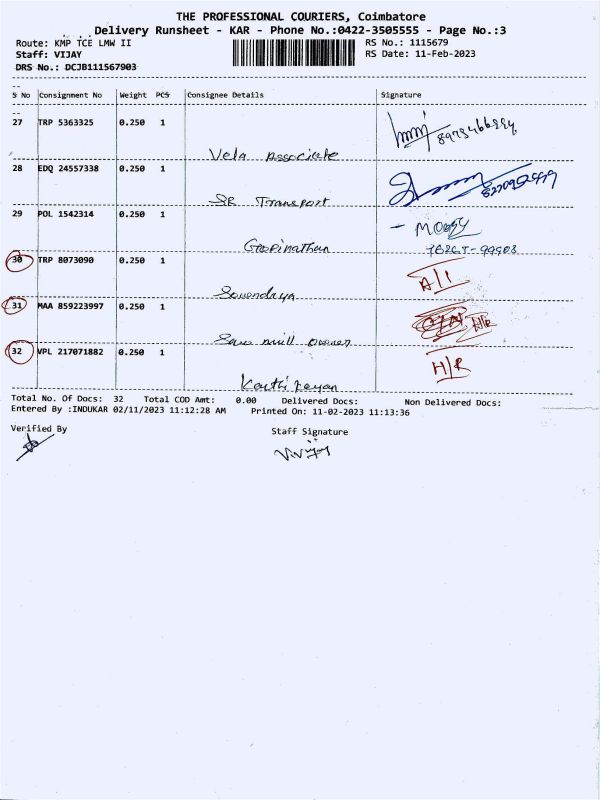 THE PROFESSIONAL COURIERS, Coimbatore
Delivery Runsheet - KAR - Phone No.:0422-3505555 - Page No.:3
Route: KMP TCE LMW II RS No.: 1115679
Staff: VIJAY RS Date: 11-Feb-2023
DRS No.: DCJB111567903
S No Consignment No Weight PCS Consignee Details Signature
27 TRP 5363325 0.250 1
Vela Associate
28 EDQ 24557338 0.250 1
SR Transport
29 POL 1542314 0.250 1
Gopinathan
30 TRP 8073090 0.250 1 A/I
Soundrya
31 MAA 859223997 0.250 1 H/R
Saw mill owner
32 VPL 217071882 0.250 1 H/R
Karthikeyan
Total No. Of Docs: 32 Total COD Amt: 0.00 Delivered Docs: Non Delivered Docs:
Entered By :INDUKAR 02/11/2023 11:12:28 AM Printed On: 11-02-2023 11:13:36
Verified By Staff Signature